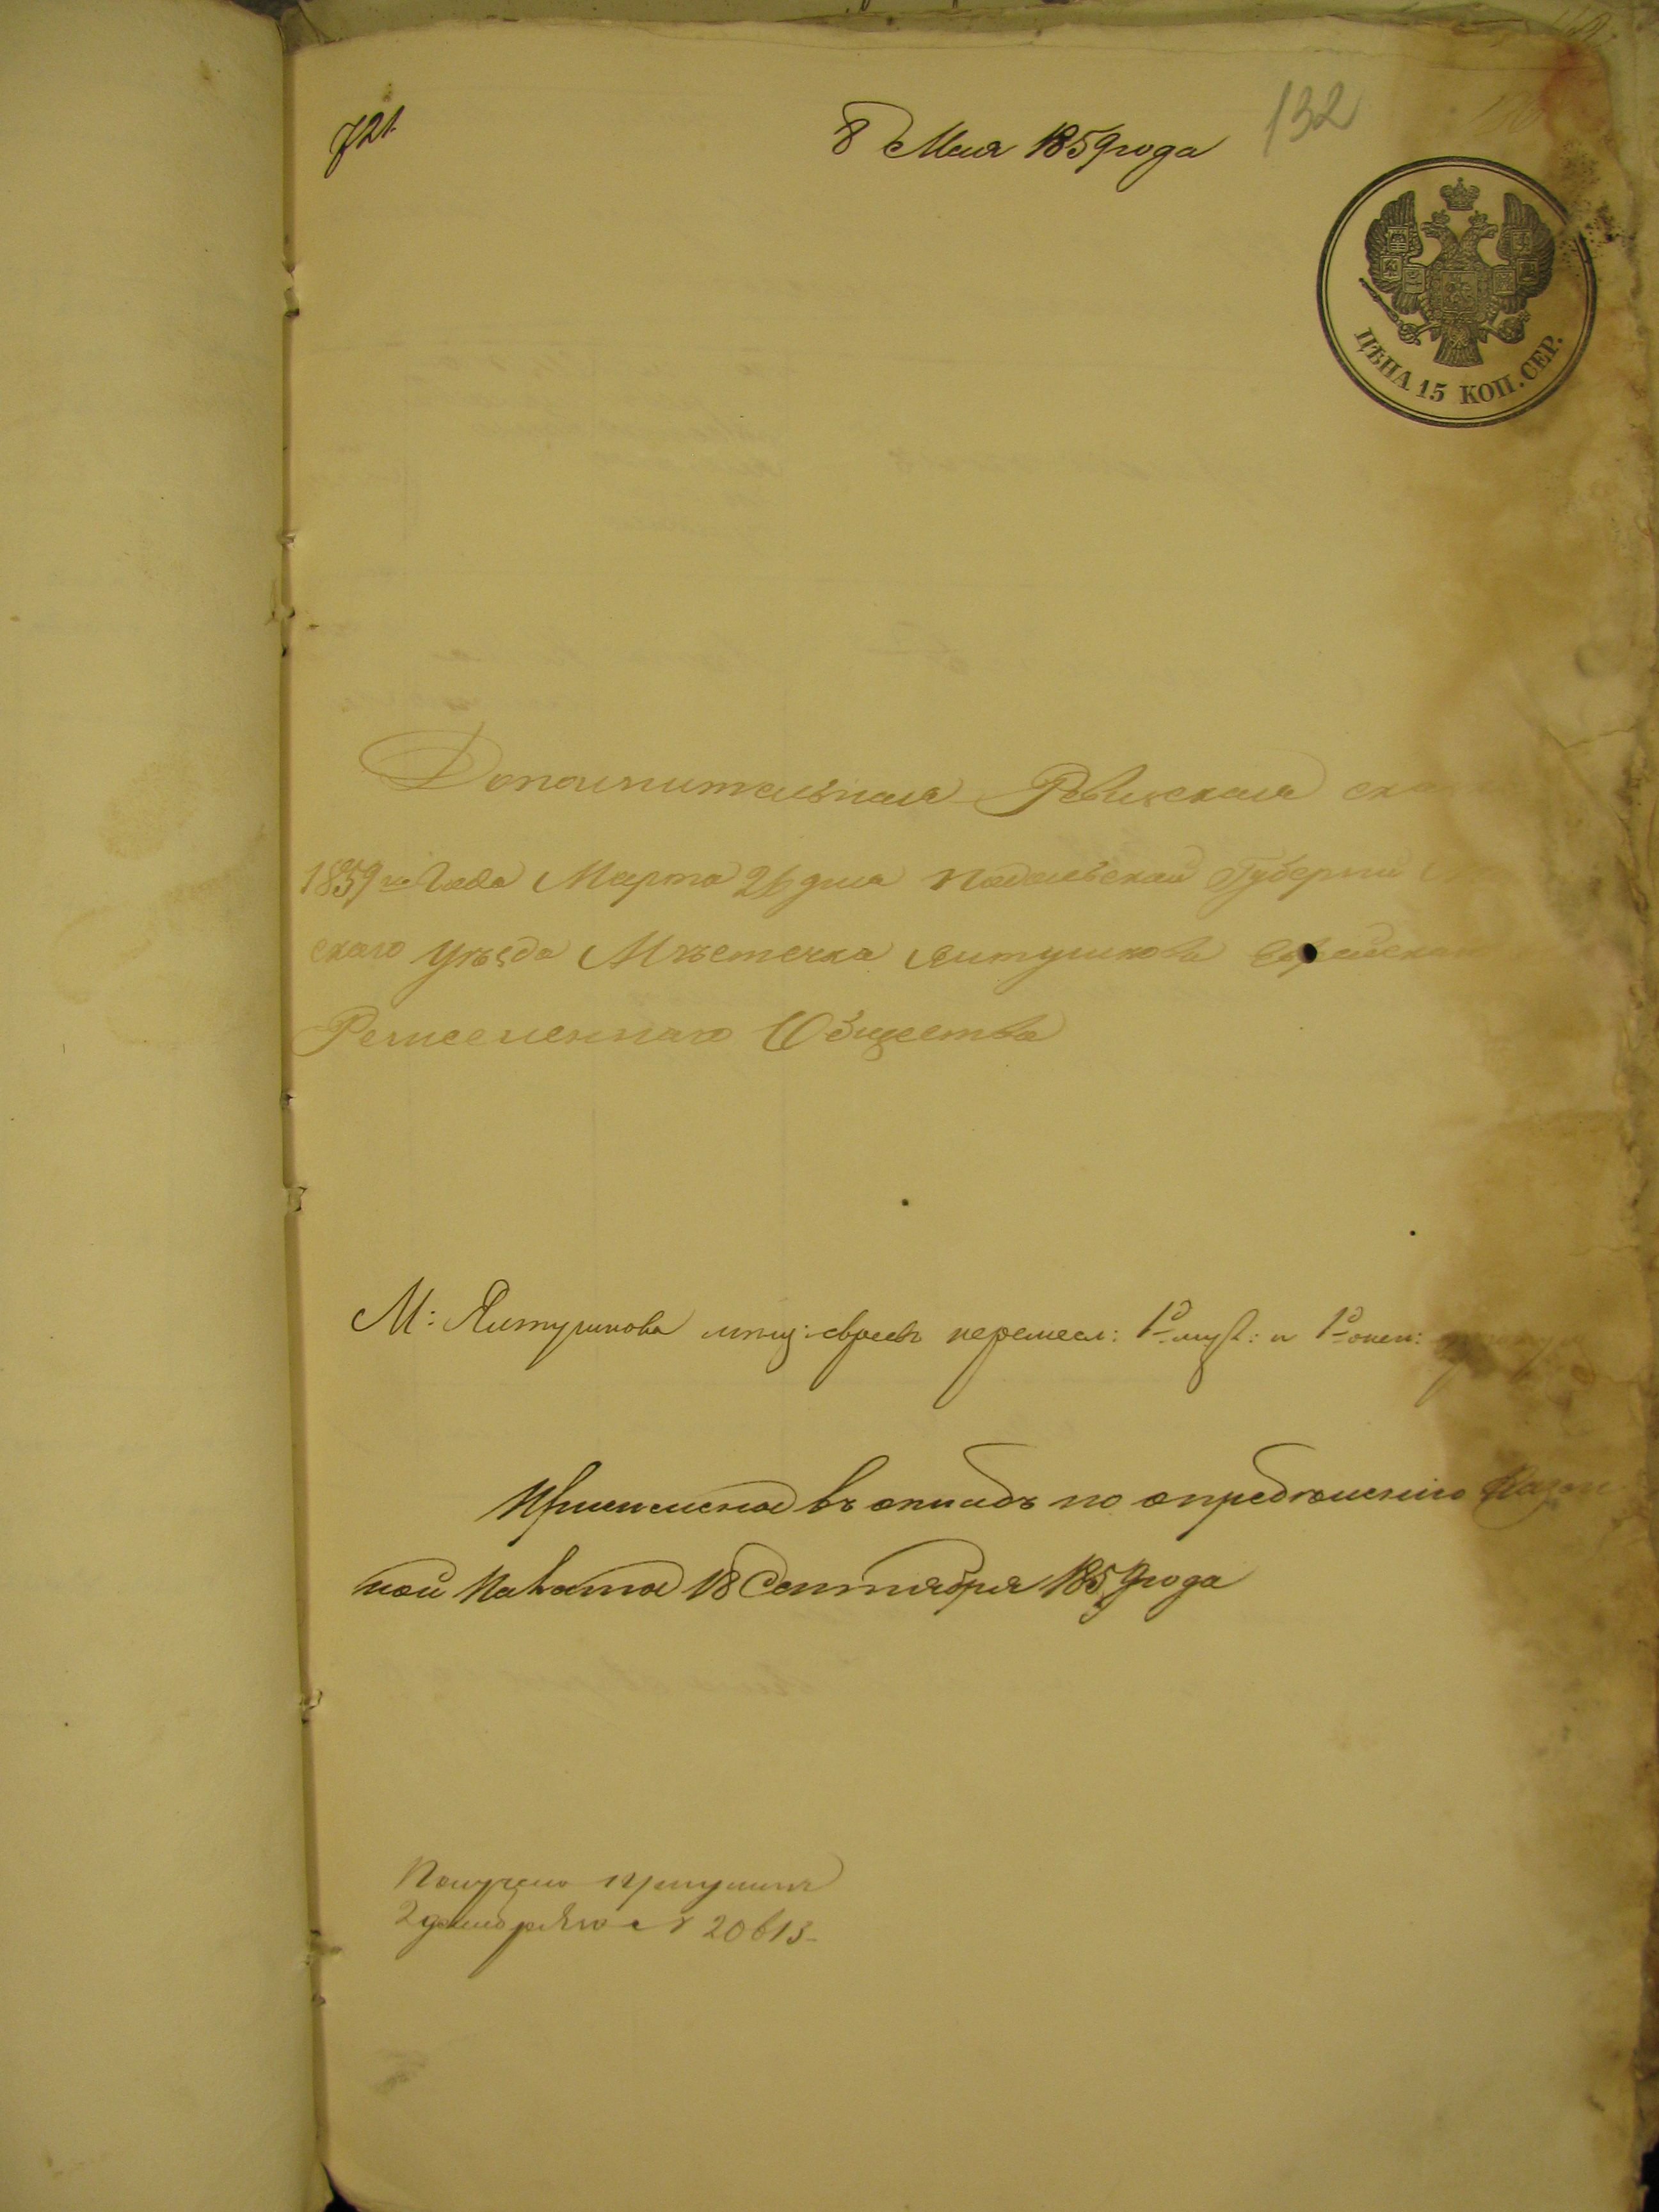 721.
8 Мая 1859 года
132
ЦѢНА 15 КОП. СЕР.
Дополнительная Ревизская ска
1859 го Года Марта 26 дня Подольской Губерніи
скаго Уѣзда Мѣстечка Янтушкова Еврейскаго
Ремесленнаго Общества
М: Янтушкова мѣщ: евреевъ 1 д. муж: и 1 д.
Причислена въ окладъ по опредѣленію Казен
ной Палаты 18 Сентября 1859 года
Получено
20613